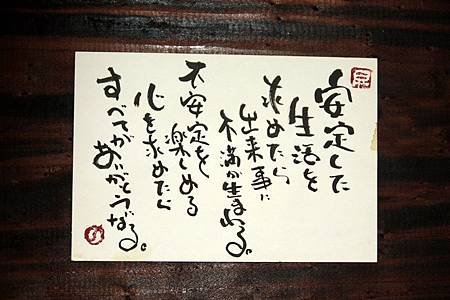 安定した
生活を
求めたら
出来事に
不満が生まれる。
不安定を
楽しめる
心を求めたら
すべてが
ありがとうになる。